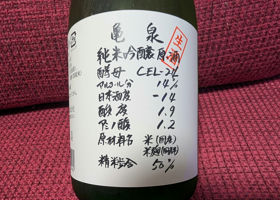 亀泉
生酒
純米吟醸原酒
酵母 CEL-24
アルコール分 14%
日本酒度 -14
酸度 1.9
アミノ酸 1.2
原材料名 米(国産)
米麹(国産米)
精米歩合 50%